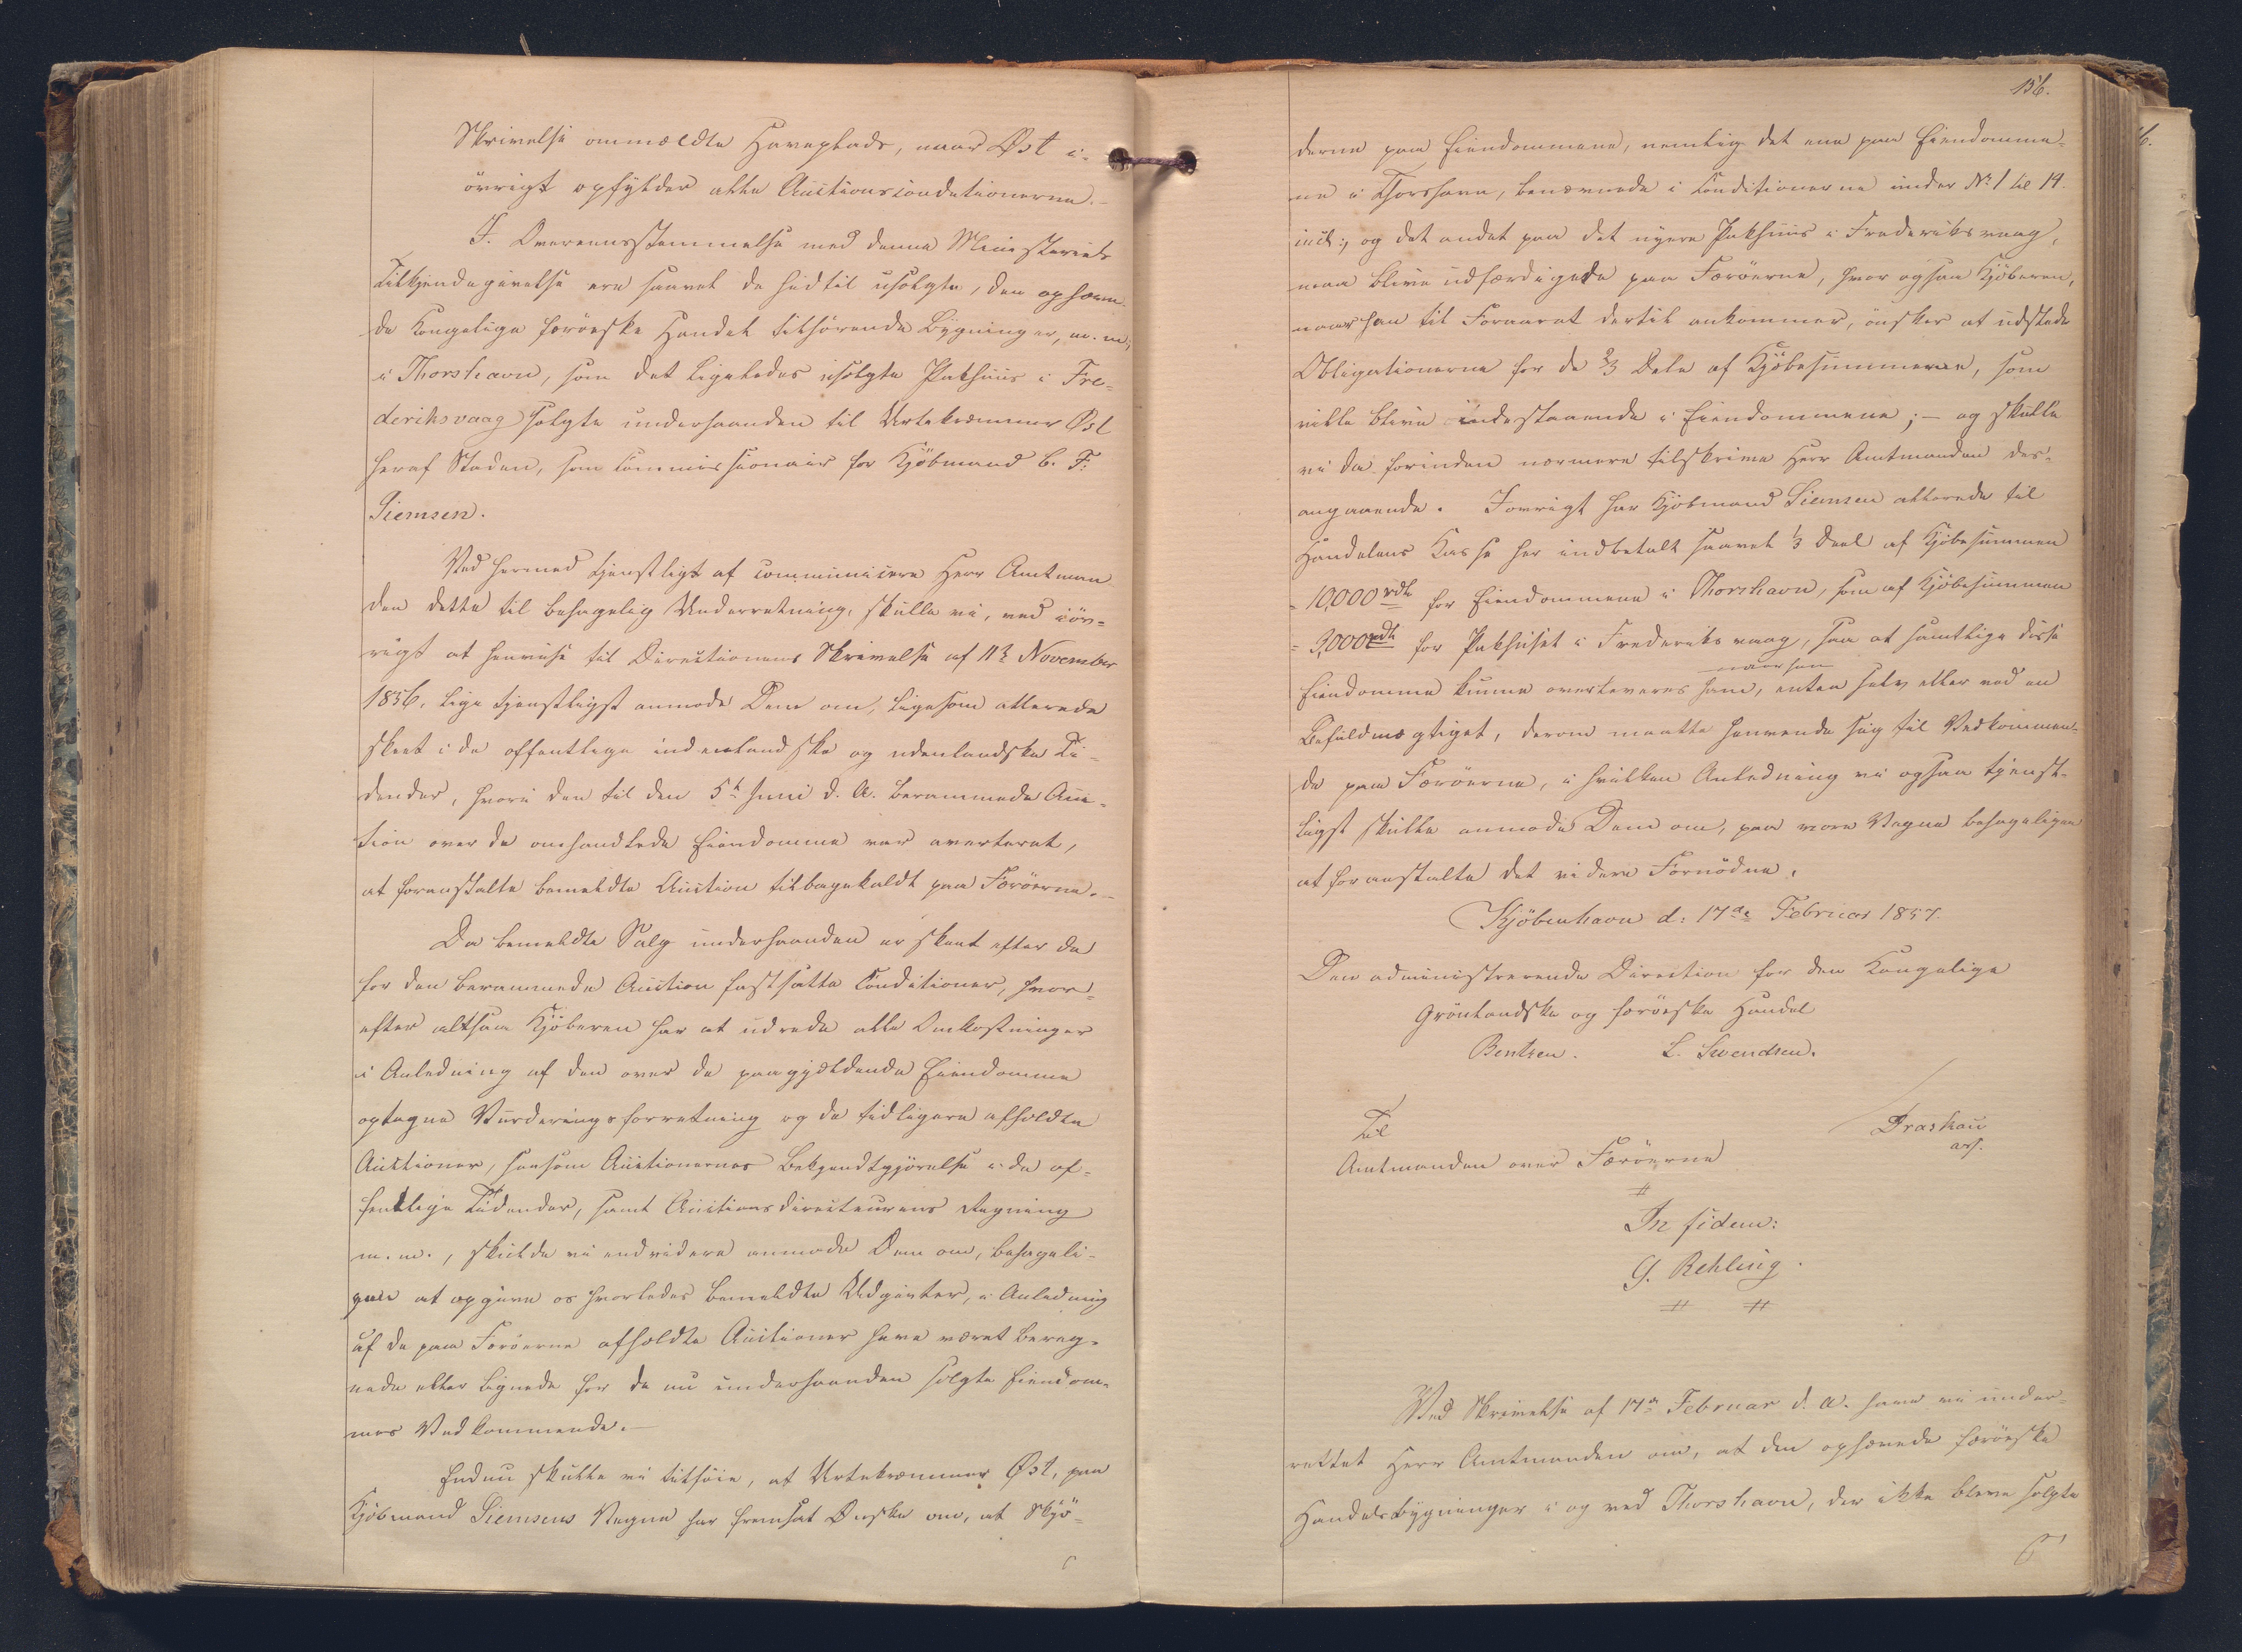 Skrivelse ommeldte Haveplads, naar Øst i-
övrigt opfylder alle Auctionsconditionerne.-
I Overeensstemmelse med denne Ministeriets
Tilkjendegivelse ere saavel de hidtil usolgte, den ophæve-
de Kongelige færöeske Handel tilhörende Bygninger, m. m.
i Thorshavn, som det ligeledes usolgte Pakhuus i Fre-
deriksvaag solgte underhaanden til Urtekræmmer Øst
heraf Staden, som Commissionair for Kjöbmand C. F.
Siemsen.
Ved hermed tjenstligst at communicere Herr Amtman
den dette til behagelig Underretning, skulle vi, ved iöv-
rigt at henvise til Directionens Skrivelse af 11te November
1856, lige tjenstligst anmode Dem om, ligesom allerede
skeet i de offentlige indenlandske og udenlandske Ti-
dender, hvori den til den 5te Juni d. A. berammede Auc-
tion over de omhandlede Eiendomme var averteret,
at foranstalte bemeldte Auction tilbagekaldt paa Færöerne.-
Da bemeldte Salg underhaanden er skeet efter de
for den berammede Auction fastsatte Conditioner, hvor-
efter altsaa Kjöberen har at udrede alle Omkostninger
i Anledning af den over de paagjældende Eiendomme
optagne Vurderingsforretning og de tidligere afholdte
Auctioner, saasom Auctionernes Bekjendtgjörelse i de of-
fentlige Tidender, samt Auctionsdirecteurens Regning
m. m., skulde vi endvidere anmode Dem om, behageli-
gen at opgive os hvorledes bemeldte Udgivter, i Anledning
af de paa Færöerne afholdte Auctioner have været bereg-
nede eller lignede for de nu underhaanden solgte Eiendom-
mes Vedkommende.-
Endnu skulle vi tilföie, at Urtekræmmer Øst, paa
Kjöbmand Siemsens Vegne har fremsat Ønske om, at Skjö-
156.
derne paa Eiendommene, nemlig det ene paa Eiendomme-
ne i Thorshavn, benævnede i Conditionerne under No 1 til 14.
incl:, og det andet paa det nyere Pakhuus i Frederiksvaag,
maa blive udfærdigede paa Færöerne, hvor ogsaa Kjöberen,
naar han til Foraaret dertil ankommer, önsker at udstede
Obligationerne for de 2/3 Dele af Kjöbesummerne, som
ville blive indestaaende i Eiendommene; - og skulle
vi da forinden nærmere tilskrive Herr Amtmanden des-
angaaende. Iövrigt har Kjöbmand Siemsen allerede til
Handelens Kasse her indbetalt saavel 1/3 Deel af Kjöbesummen
= 10,000 rdl for Eiendommene i Thorshavn, som af Kjöbesummen
= 3,000 rdl for Pakhuset i Frederiksvaag, saa at samtlige disse
naar han
Eiendomme kunne overleveres ham, enten selv eller ved en
Befuldmægtiget, derom maatte henvende sig til Vedkommen-
de paa Færöerne, i hvilken Anledning vi ogsaa tjenst-
ligst skulle anmode Dem om, paa vore Vegne behageligen
at foranstalte det videre Fornödne.
Kjöbenhavn d: 17de Februar 1857.
Den administrerende Direction for den Kongelige
Grönlandske og færöeske Handel
Bentzen. L. Svendsen.
Draskau
ass.
Til
Amtmanden over Færöerne
#
In fidem:
G. Rehling.
# #
Ved Skrivelse af 17de Februar d. A. have vi under-
rettet Herr Amtmanden om, at den ophævede færöeske
Handels Bygninger i og ved Thorshavn, der ikke bleve solgte